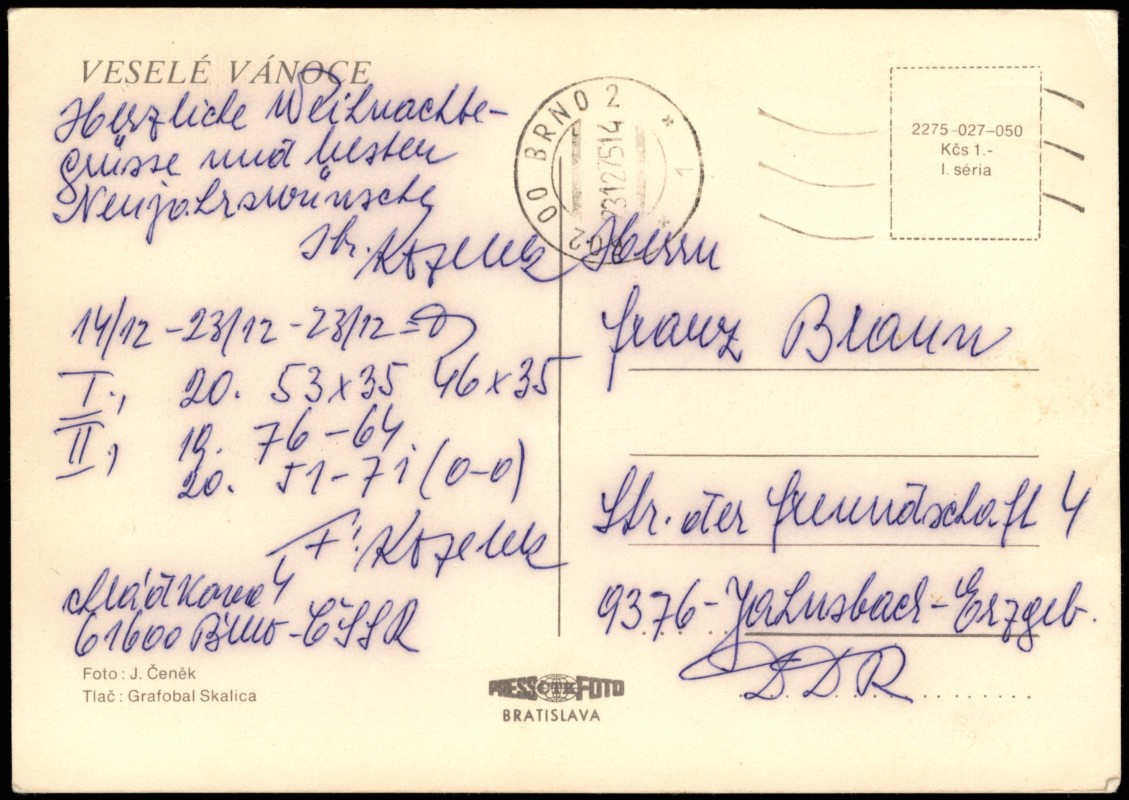 VESELÉ VÁNOCE
Herzliche Weihnachts-
grüsse und besten
Neujahrswünsche
Ihr. Kozelek
14/12 -23/12 -23/12 =
I., 20. 53x35 46x35
II, 19. 76-64
20. 51-71 (0-0)
F. Kozelek
Mládkova 4
61600 Brno-ČSSR
Foto: J. Čeněk
Tlač: Grafobal Skalica
PRESS ČTK FOTO
BRATISLAVA
602 00 BRNO 2
23.12.75 14
* 1 *
2275-027-050
Kčs 1.-
I. séria
Herrn
Franz Braun
Str. der Freundschaft 4
9376-Jahnsbach-Erzgeb.
DDR